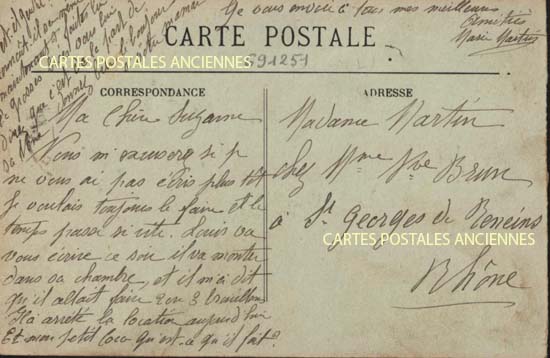 Je vous envoie à tous mes meilleures
amitiés
Marie Martin
CARTE POSTALE
CARTES POSTALES ANCIENNES
691251
CORRESPONDANCE
ADRESSE
Ma Chère Suzanne
Vous m'excuserez si je
ne vous ai pas écris plus tôt
Je voulais toujours le faire et le
temps passe si vite. Louis va
vous écrire ce soir il va monter
dans sa chambre, et il m'a dit
qu'il allait faire 2 ou 3 brouillons
Il a arrêté la location aujourd'hui
Et mon petit coco qu'est-ce qu'il fait?
Madame Martin
chez Mme Vve Brun
à St Georges de Reneins
CARTES POSTALES ANCIENNES
Rhône